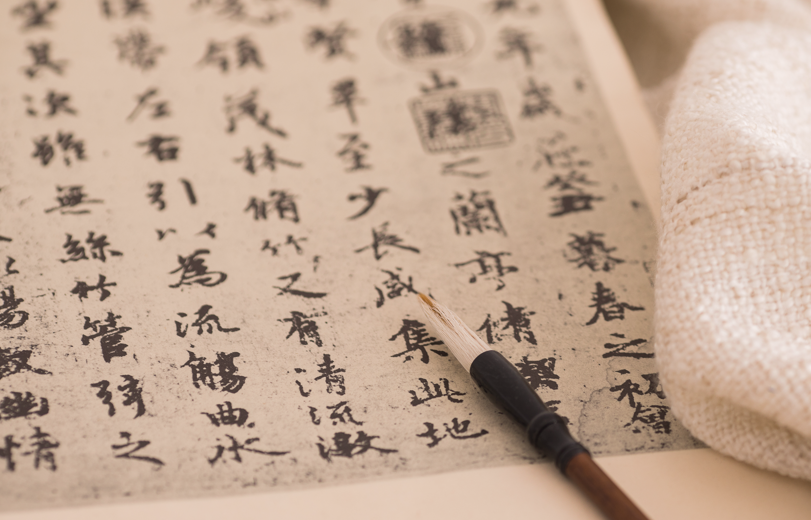 年歲在癸丑暮春之初會
稽山陰之蘭亭脩禊
賢畢至少長咸集此地
領茂林脩竹又有清流激
帶左右引以為流觴曲水
坐其次雖無絲竹管弦之
暢敘幽情